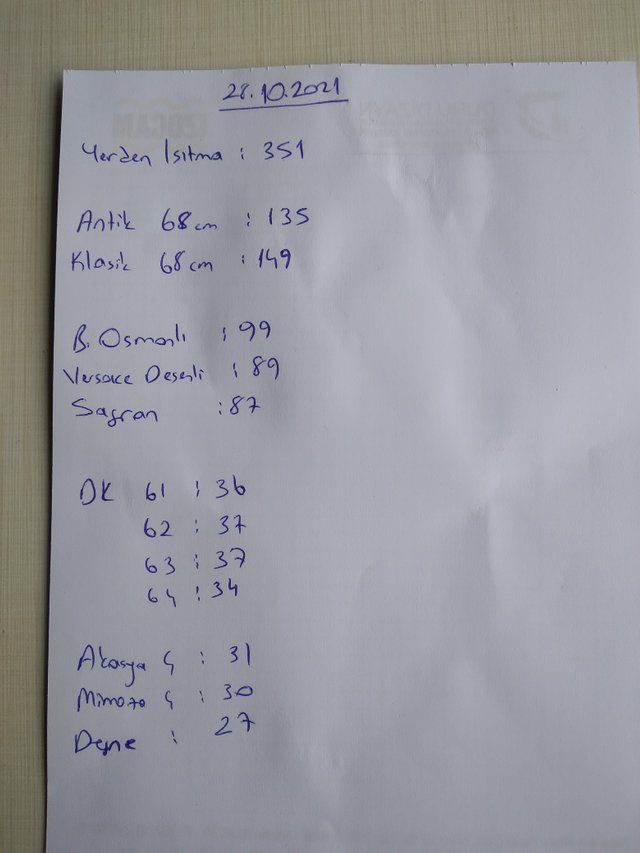 28.10.2021
Yerden Isıtma : 351
Antik 68 cm : 135
Klasik 68 cm : 149
B. Osmanlı : 99
Versace Desenli : 89
Safran : 87
DK 61 : 36
62 : 37
63 : 37
64 : 34
Akasya Ç : 31
Mimoza Ç : 30
Defne : 27